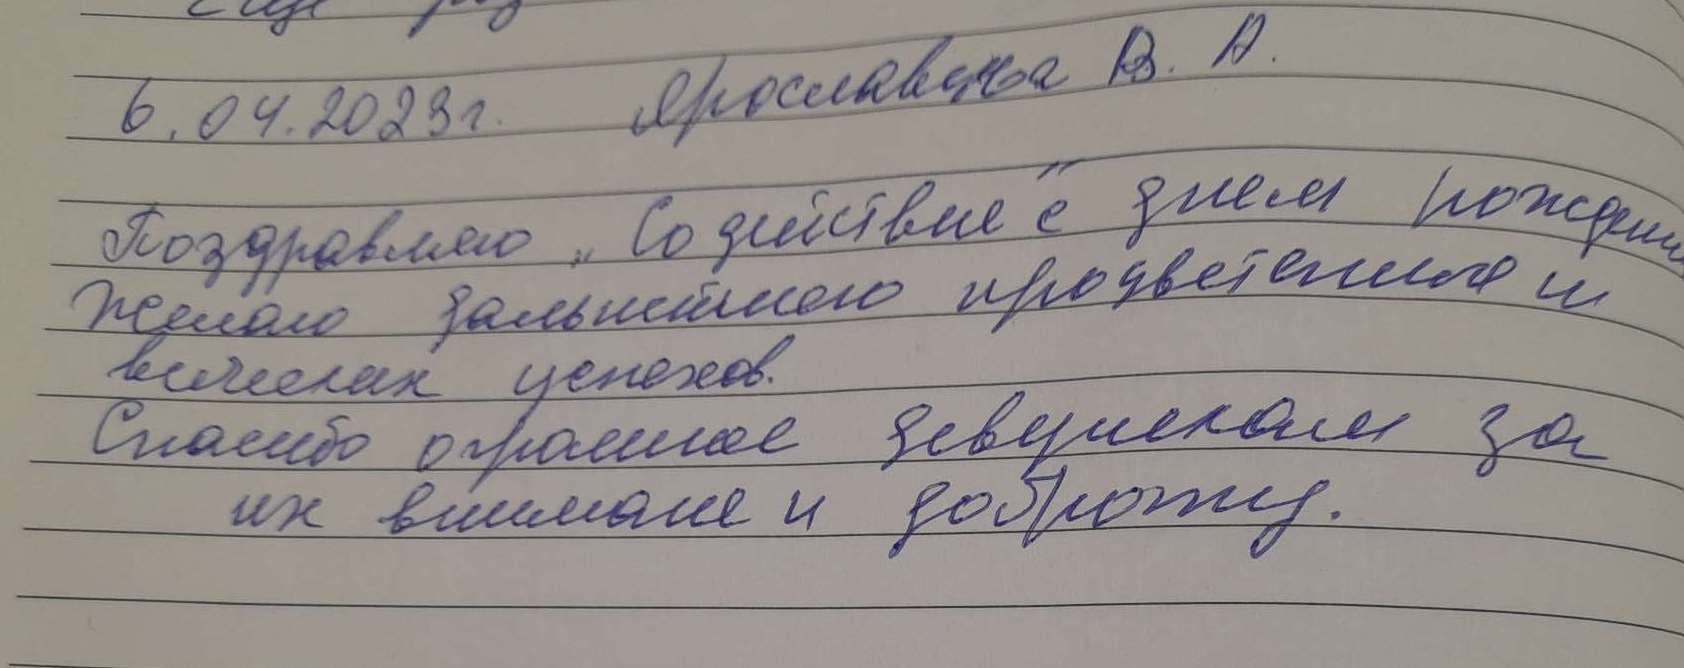 Еще раз
6.04.2023г. Ярославцева В. А.
Поздравляю „Содействие" с днем рождения
Желаю дальнейшего процветания и
всяческих успехов.
Спасибо огромное девушкам за
их внимание и доброту.